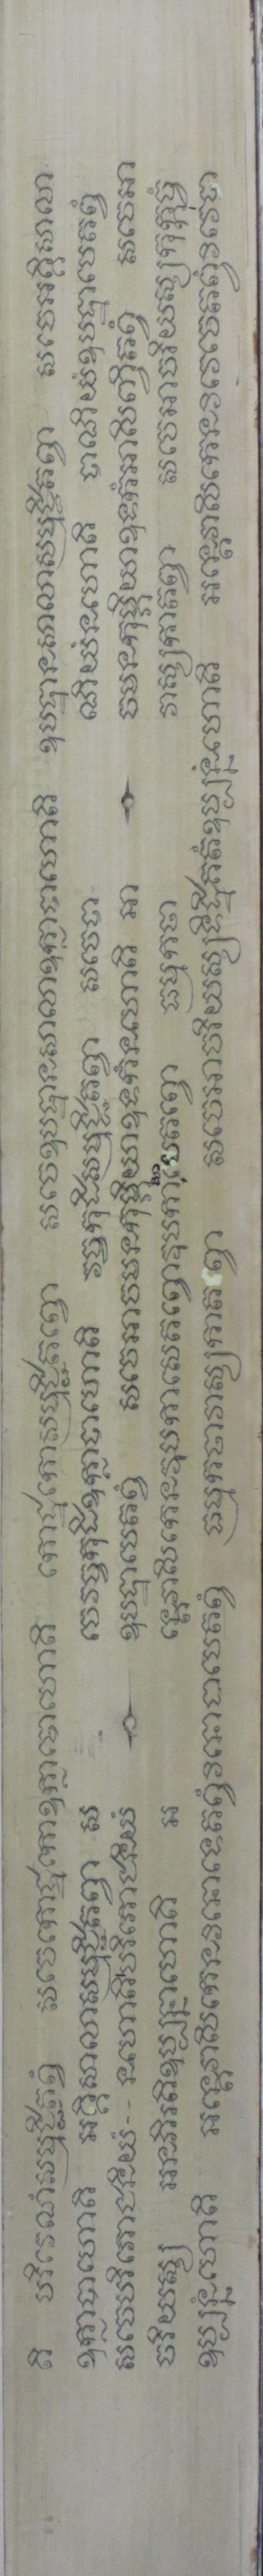 តិ បរិវេណំសម្មជ្ជិតព្វំ សចេកោដ្ឋកោឧក្លាបោហោតិ កោដ្ឋកោសម្មជ្ជិតព្វោ សចេឧបដ្ឋានសាលាឧក្លាបាហោតិ ឧបដ្ឋានសាលាសម្មជ្ជិតព្វា សចេអគ្គិសាលា
ឧក្លាបាហោតិ អគ្គិសាលាសម្មជ្ជិតព្វា ស ចេវច្ចកុដិឧក្លាបាហោតិ វច្ចកុដិសម្មជ្ជិតព្វា សចេបា ណិយំនហោតិ បាណិយំឧបដ្ឋាបេតព្វំ
សចេបរិភោជនិយំ--នហោតិបរិភោជនិយំ ឧបដ្ឋាបេតព្វំ សចេអាចមនកុម្ភិយាឧទកំនហោតិ អា ចមនកុម្ភិយាឧទកំអាសិញ្ចិតព្វំ សចេអា
ចរិយស្ស អនភិរតិឧប្បន្នាហោតិ អ ន្តេវាសិកេនវូបកាសេតព្វោវូបកាសាបេតព្វោ ធម្មកថា វាស្សកាតព្វា សចេអាចរិយស្សកុក្កុច្ចំ
ឧប្បន្នំហោតិ អន្តេវាសិកេនវិនោទេតព្វំវិនោទាបេតព្វំ ធម្មកថាវាស្សកាតព្វា សចេអាចរិយស្សទិដ្ឋិគតំឧប្បន្នំហោតិ អន្តេវាសិកេនវិវេចេតព្វំវិវេចា